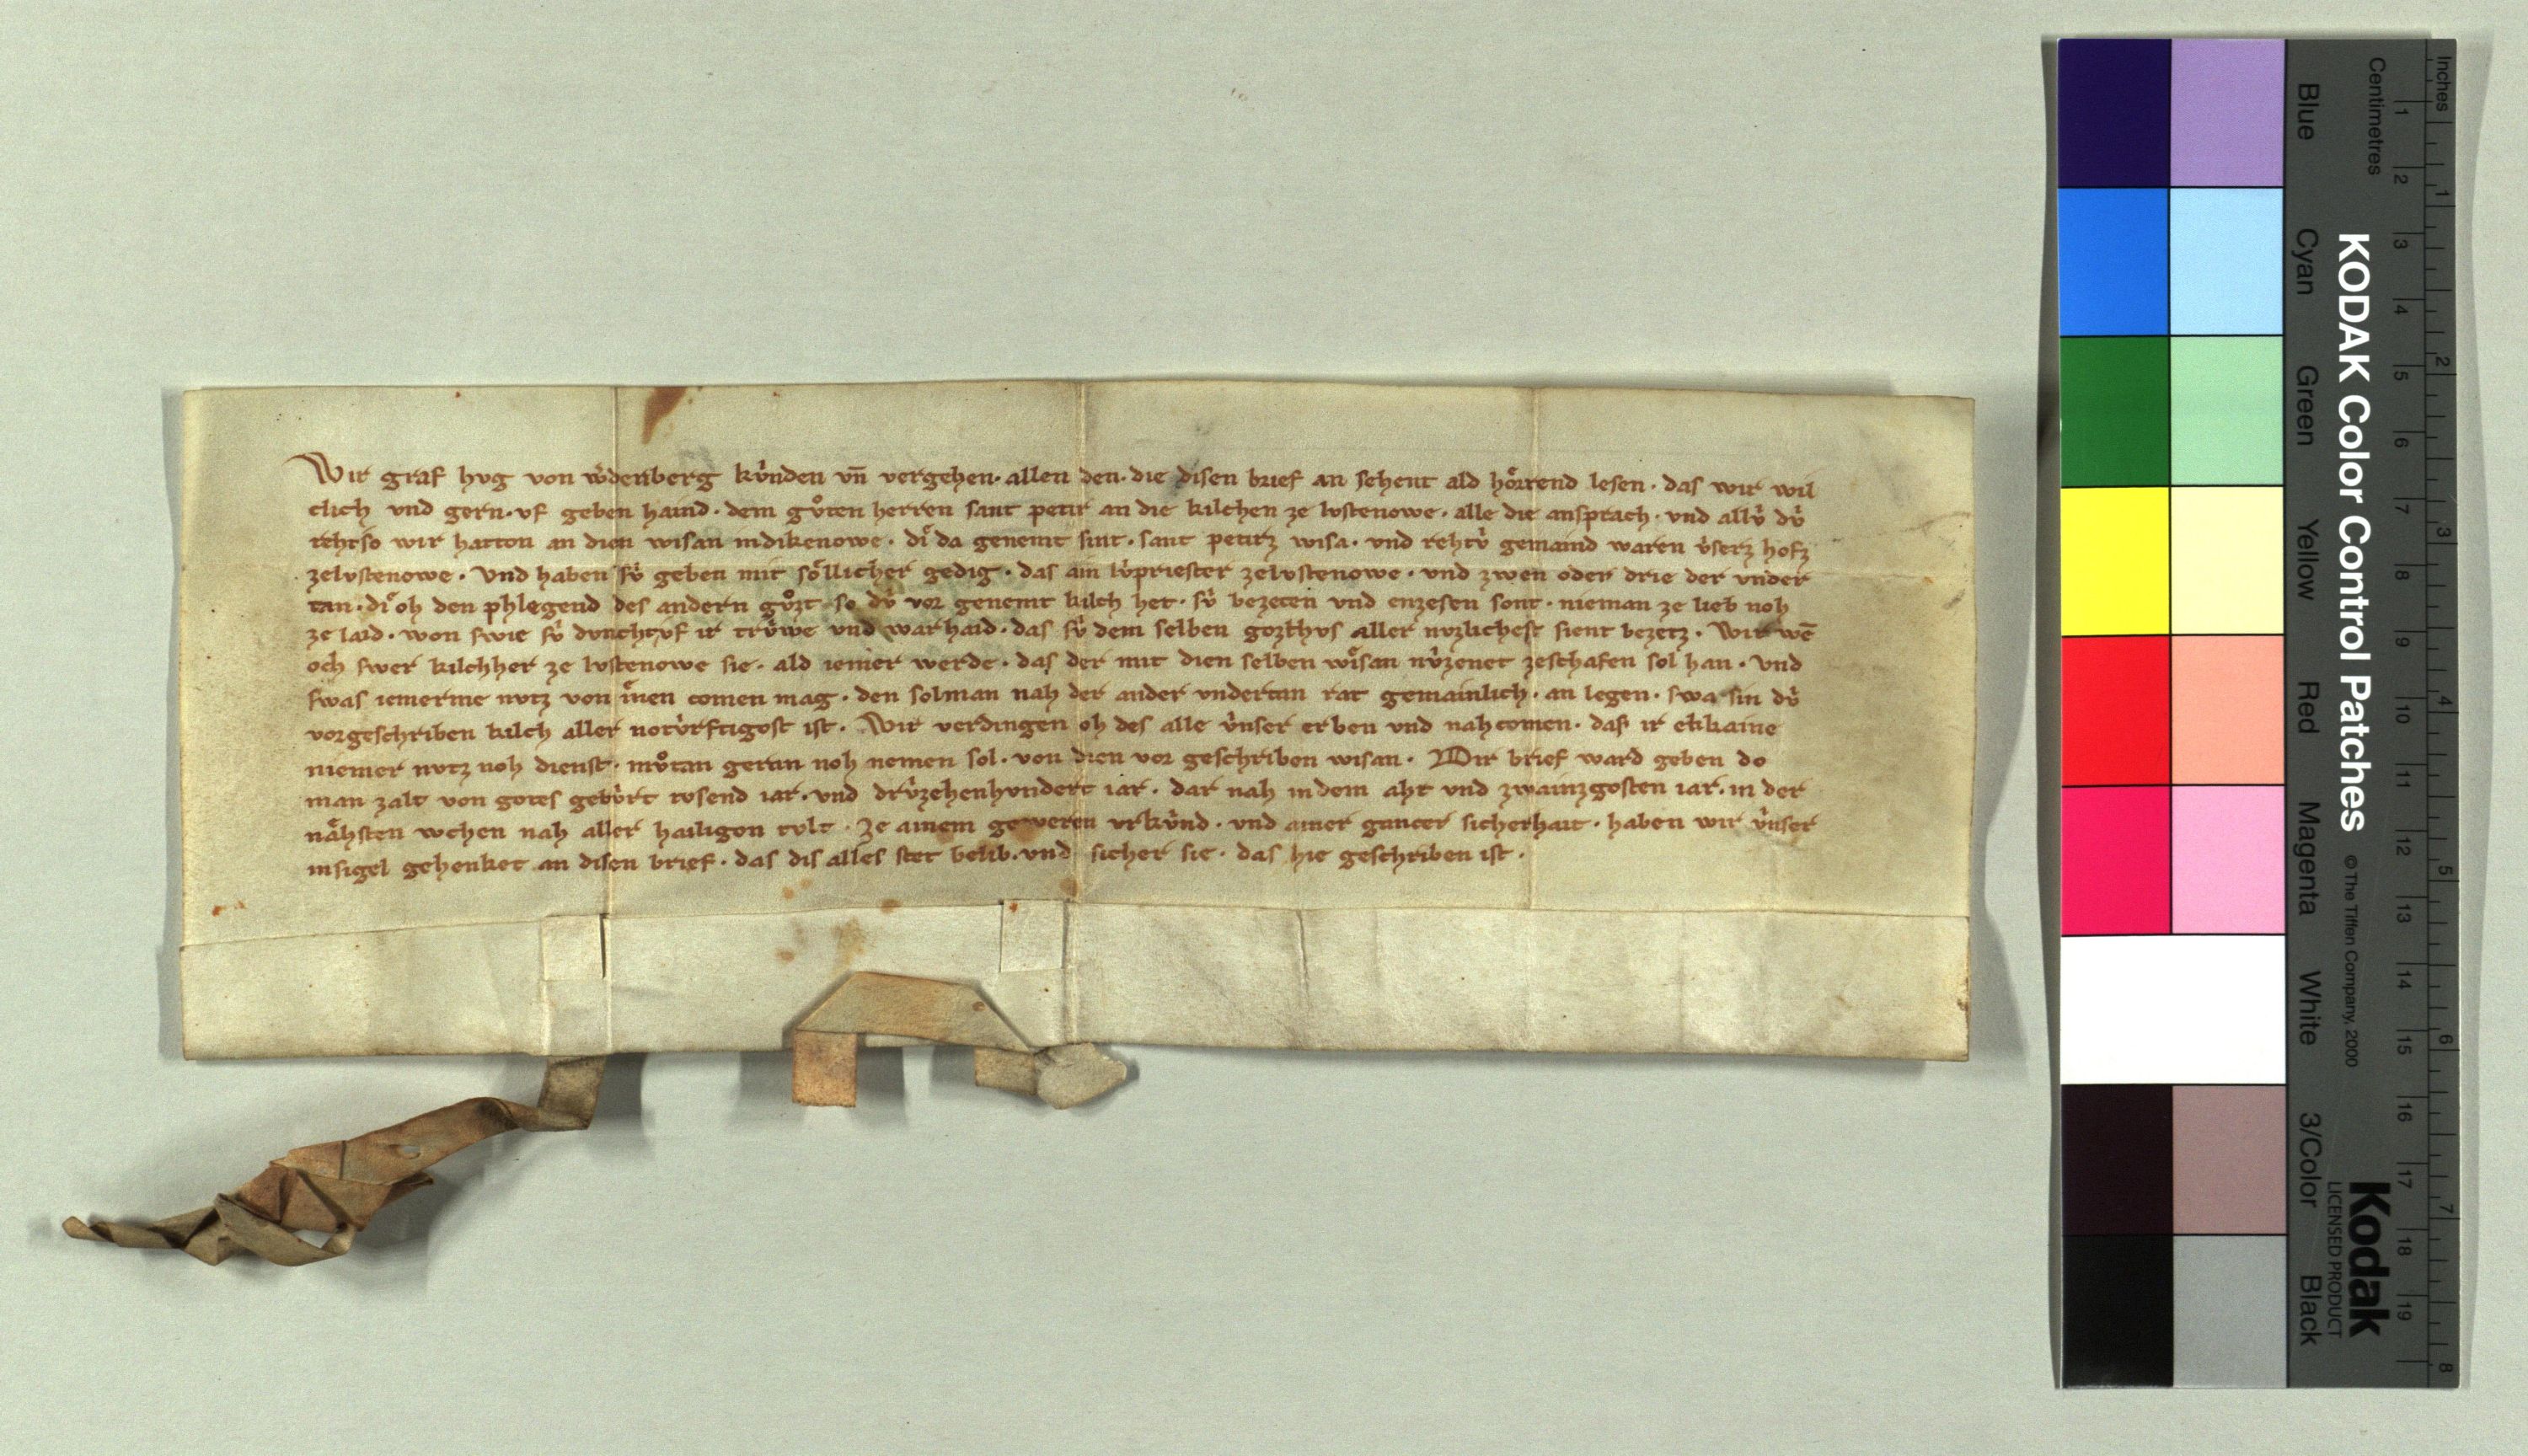 Wir graf hvg von w̓denberg kv̓nden vn̄ vergehen· allen den· die disen brief an sehent ald hoͤrrend lesen · das wir wil
clich vnd gern· vf geben haind · dem gvͦten herren sant petir an die kilchen ze lvstenowe · alle die ansprach · vnd allv̓ dv̓
rehtso wir hatton an dien wisan indikenowe · di da genemt sint · sant petirz wisa · vnd rehtv̓ gemaind waren v̓serz hofz
zelvstenowe · Vnd haben sv̓ geben mit soͤllicher gedig · das ain lv̓priester zelvstenowe · vnd zwen oder drie der vnder
tan · di oh den phlegend des andern gvͦzt so dv̓ vor genemt kilch het · sv̓ bezeten vnd enzesen sont · nieman ze lieb noh
ze laid · won swie sv̓ dvnchtvf ir trv̓we vnd warhaid · das sv̓ dem selben gozthvs aller nvzlichest sient bezetz · Wir wē
och swer kilchher ze lvstenowe sie · ald iemer werde · das der mit dien selben wisan nv̓zenet zeschafen sol han · Vnd
swas iemerme nvtz von inen comen mag · den solman nah der ander vndertan rat gemainlich · an legen · swa sin dv̓
vorgeschriben kilch aller notv̓rftigost ist · Wir verdingen oh des alle v̓nser erben vnd nahcomen · das ir ekkaine
niemer nvtz noh dienst · mvͦtan getan noh nemen sol · von dien vor geschriben wisan · Dir brief ward geben do
man zalt von gotes gebv̓rt tvsend iar · vnd drv̓zehenhvndert iar · dar nah indem aht vnd zwainzgosten iar · in der
naͤhsten wchen nah aller hailigon tvlt · Ze ainem geweren vrkv̓nd · vnd ainer gantzer sicherhait · haben wir v̓nser
insigel gehenket an disen brief · das dis alles stet belib · vnd sicher sie · das hie geschriben ist ·
KODAK Color Control Patches © The Tiffen Company, 2000
Kodak
LICENSED PRODUCT
Blue Cyan Green Yellow Red Magenta White 3/Color Black
Centimetres 1 2 3 4 5 6 7 8 9 10 11 12 13 14 15 16 17 18 19
Inches 1 2 3 4 5 6 7 8